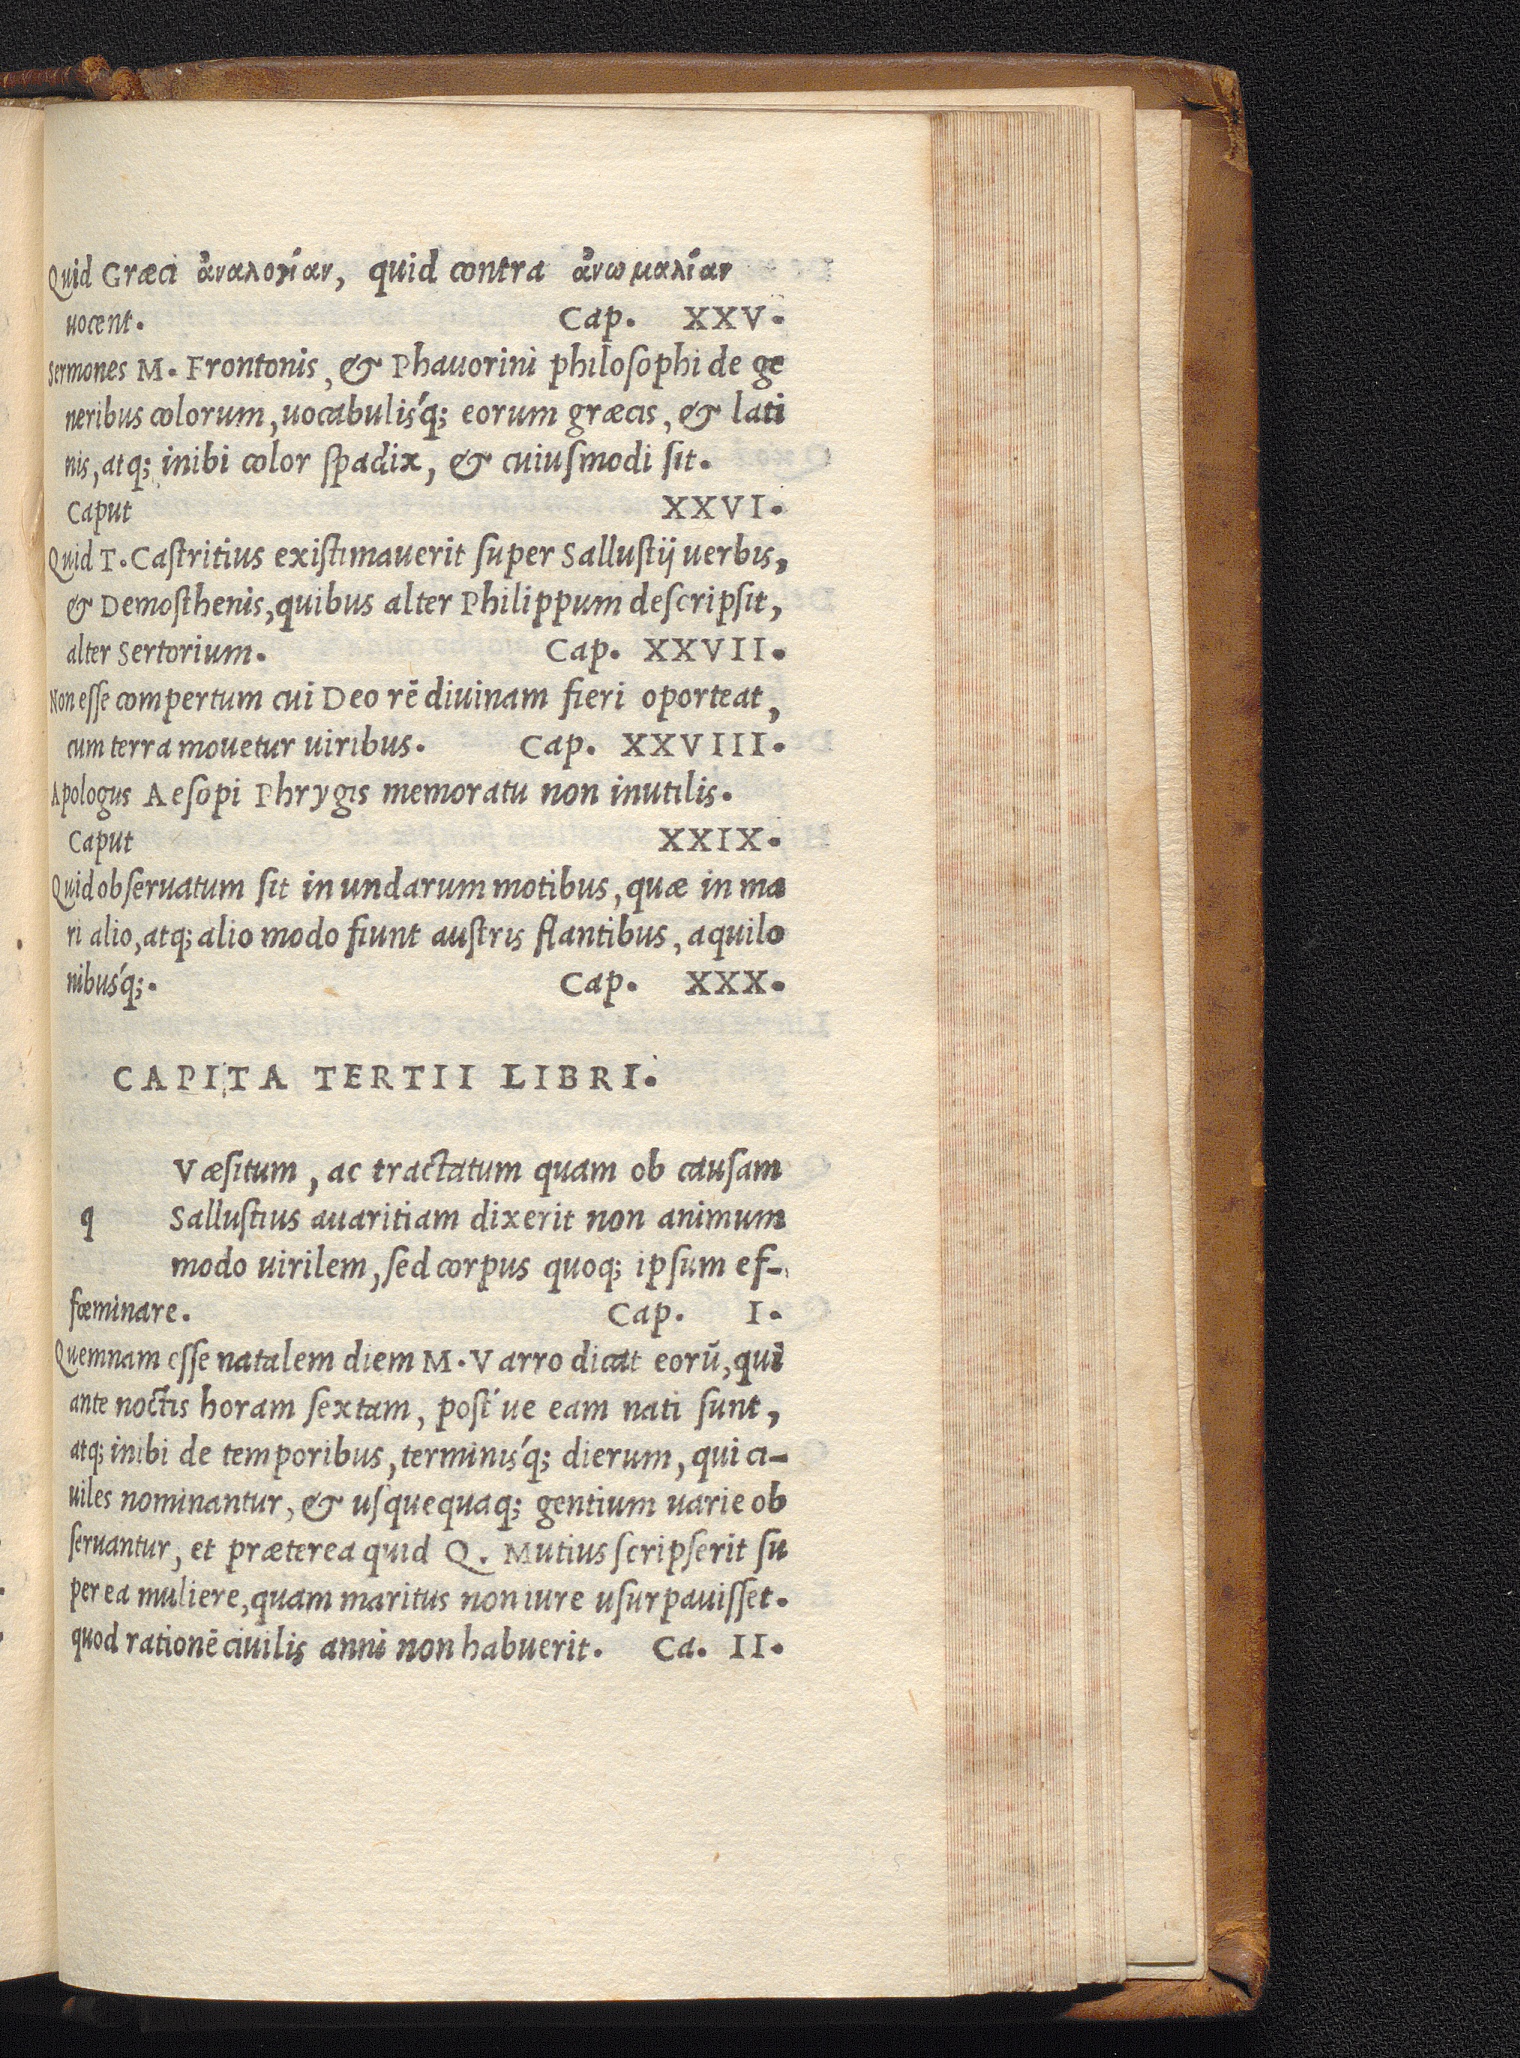 Quid Græci ἀναλογίαν, quid contra ἀνωμαλίαν
uocent. Cap. XXV.
Sermones M. Frontonis, & Phauorini philosophi de ge
neribus colorum, uocabulis´q; eorum græcis, & lati
nis, atq; inibi color spadix, & cuiusmodi sit.
Caput XXVI.
Quid T. Castritius existimauerit super Sallustij uerbis,
& Demosthenis, quibus alter Philippum descripsit,
alter Sertorium. Cap. XXVII.
Non esse compertum cui Deo rē diuinam fieri oporteat,
cum terra mouetur uiribus. Cap. XXVIII.
Apologus Aesopi Phrygis memoratu non inutilis.
Caput XXIX.
Quid obseruatum sit in undarum motibus, quæ in ma
ri alio, atq; alio modo fiunt austris flantibus, aquilo
nibus´q;. Cap. XXX.
CAPITA TERTII LIBRI.
q Væsitum, ac tractatum quam ob causam
Sallustius auaritiam dixerit non animum
modo uirilem, sed corpus quoq; ipsum ef-
fœminare. Cap. I.
Quemnam esse natalem diem M. Varro dicat eorū, qui
ante noctis horam sextam, post´ue eam nati sunt,
atq; inibi de temporibus, terminis´q; dierum, qui ci-
uiles nominantur, & usquequaq; gentium uarie ob
seruantur, et præterea quid Q. Mutius scripserit su
per ea muliere, quam maritus non iure usurpauisset.
quod rationē ciuilis anni non habuerit. Ca. II.